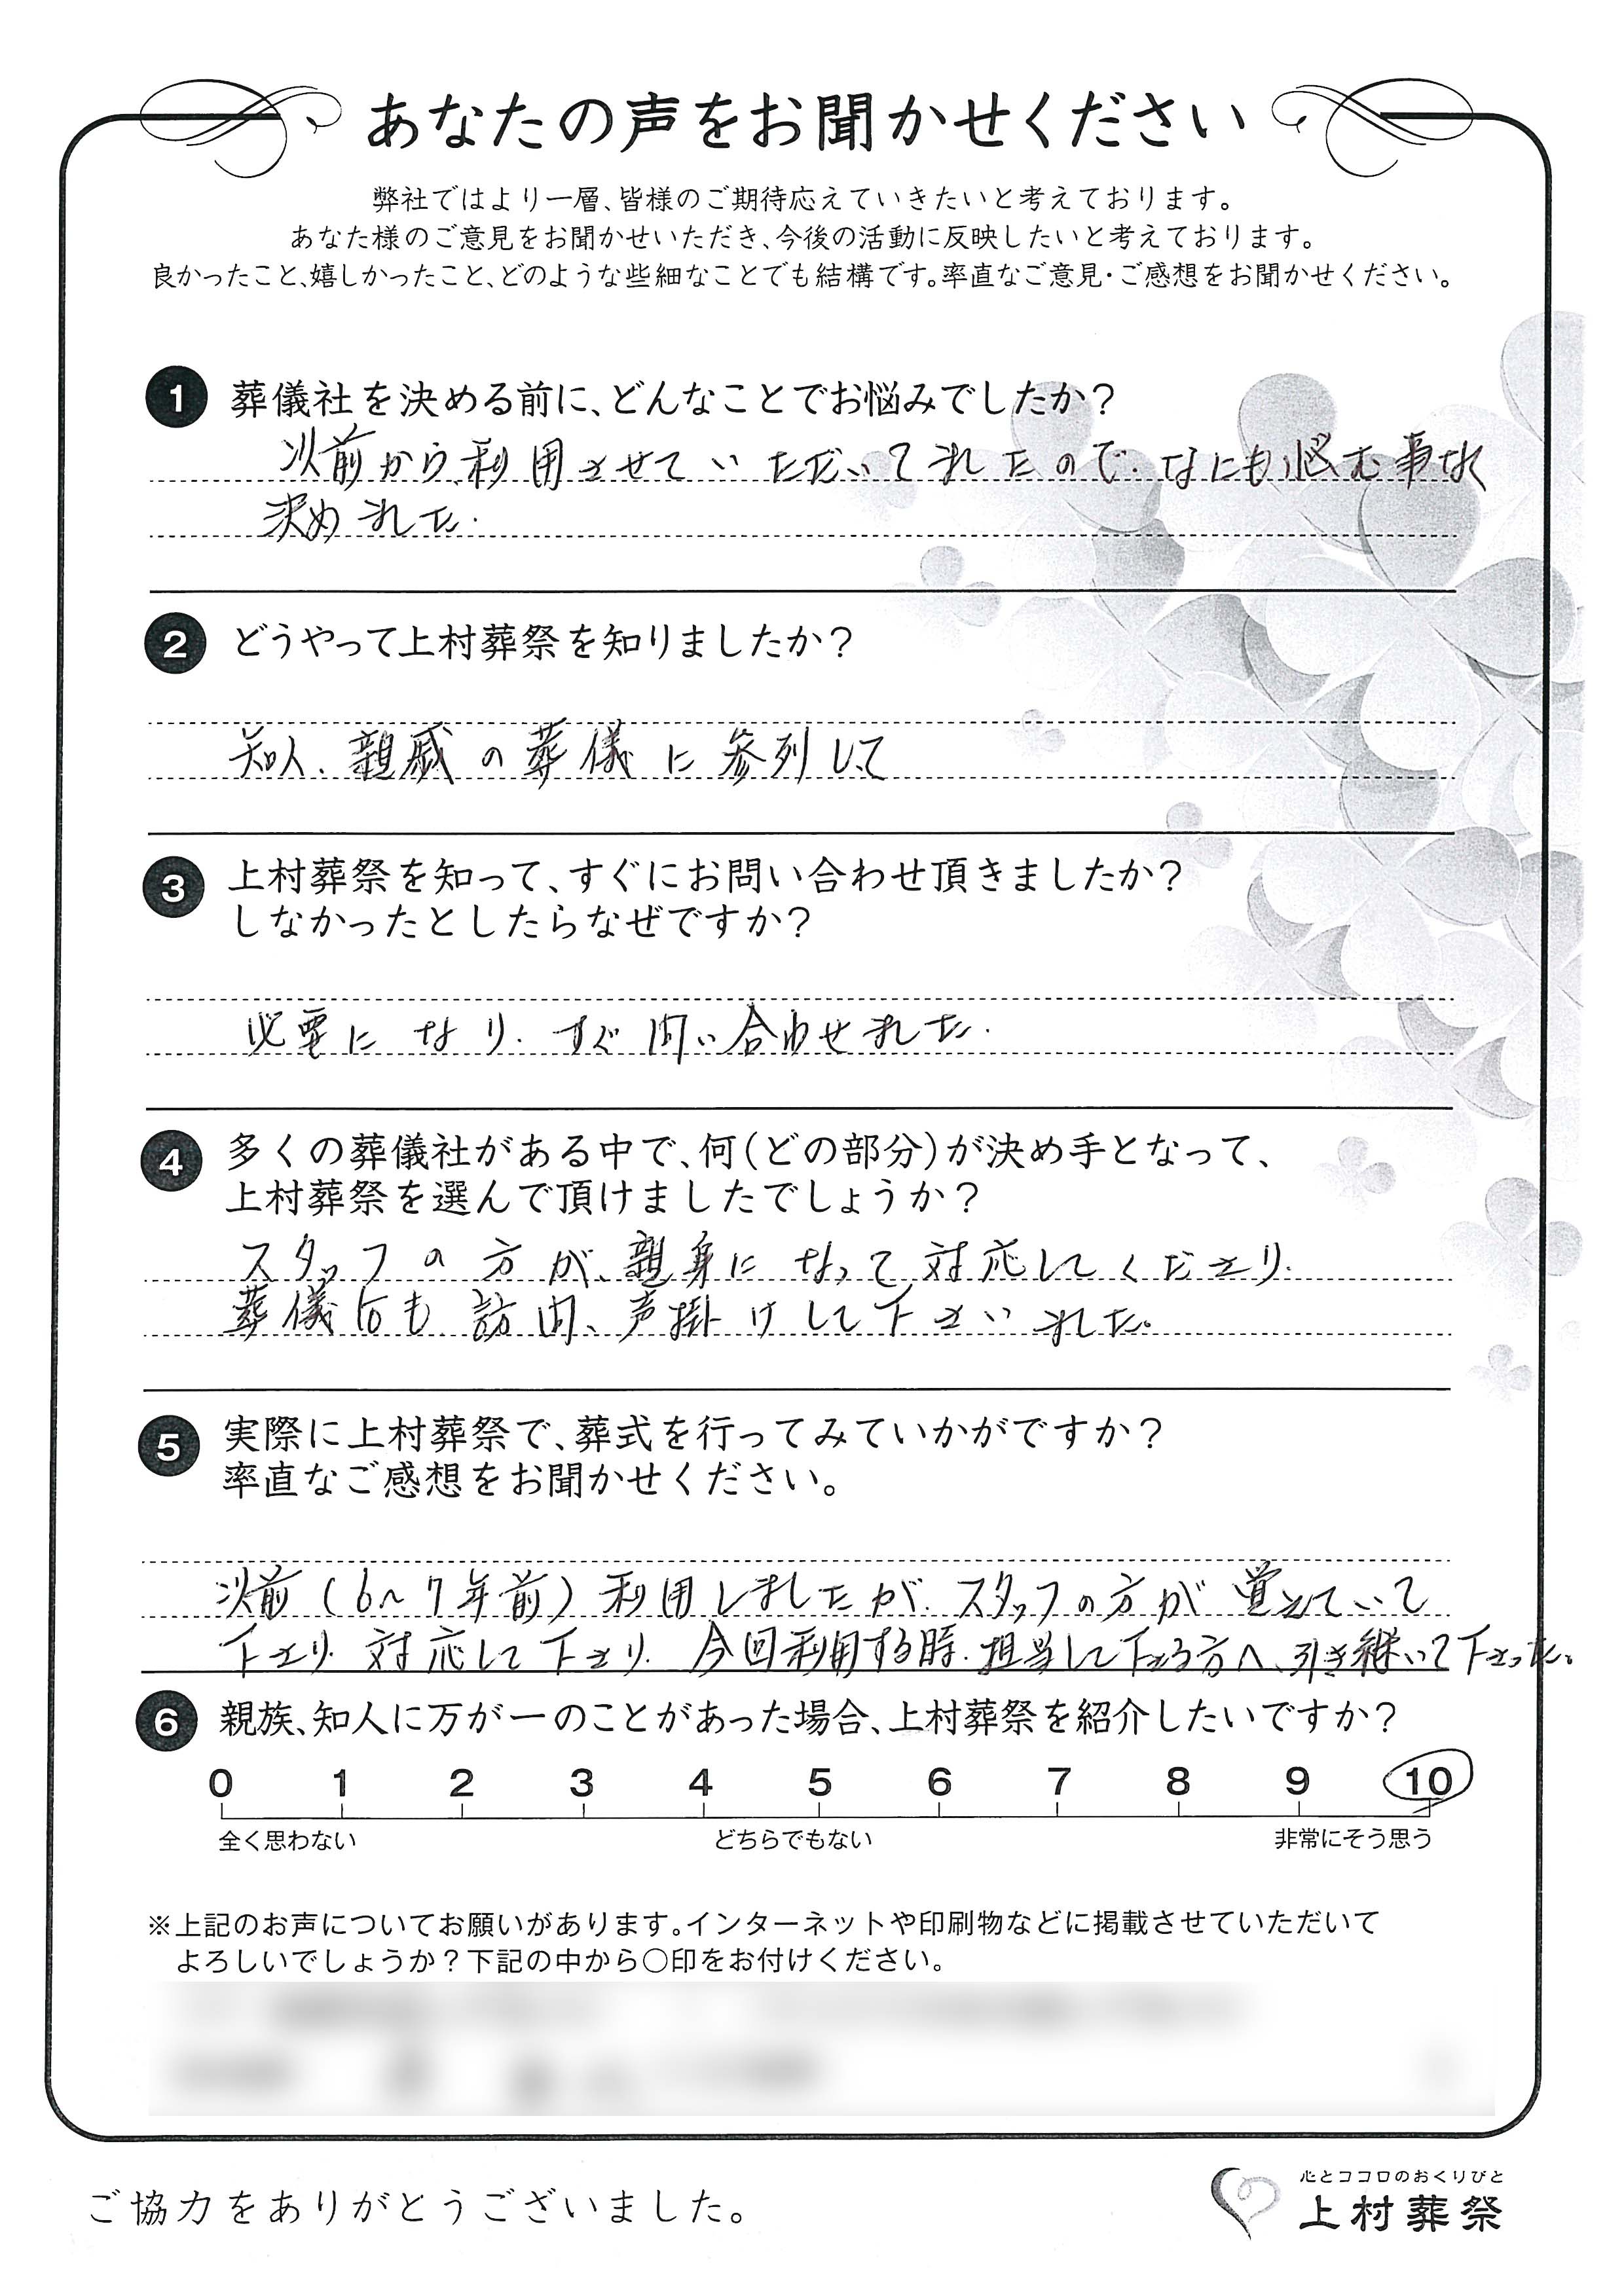 あなたの声をお聞かせください
弊社ではより一層、皆様のご期待応えていきたいと考えております。
あなた様のご意見をお聞かせいただき、今後の活動に反映したいと考えております。
良かったこと、嬉しかったこと、どのような些細なことでも結構です。率直なご意見・ご感想をお聞かせください。
1 葬儀社を決める前に、どんなことでお悩みでしたか?
以前から、利用させていただいてれたので、なにも悩む事なく
決めれた.
2 どうやって上村葬祭を知りましたか?
知人、親戚の葬儀に参列して
3 上村葬祭を知って、すぐにお問い合わせ頂きましたか?
しなかったとしたらなぜですか?
必要になり、すぐ問い合わせれた.
4 多くの葬儀社がある中で、何(どの部分)が決め手となって、
上村葬祭を選んで頂けましたでしょうか?
スタッフの方が、親身になって対応してくださり、
葬儀后も訪問、声掛けして下さいれた。
5 実際に上村葬祭で、葬式を行ってみていかがですか?
率直なご感想をお聞かせください。
以前(6〜7年前)利用しましたが、スタッフの方が覚えていて
下さり、対応して下さり、今回利用する時、担当して下さる方へ、引き継いで下さった。
6 親族、知人に万が一のことがあった場合、上村葬祭を紹介したいですか?
0 1 2 3 4 5 6 7 8 9 10
全く思わない どちらでもない 非常にそう思う
※上記のお声についてお願いがあります。インターネットや印刷物などに掲載させていただいて
よろしいでしょうか?下記の中から○印をお付けください。
ご協力をありがとうございました。
心とココロのおくりびと
上村葬祭